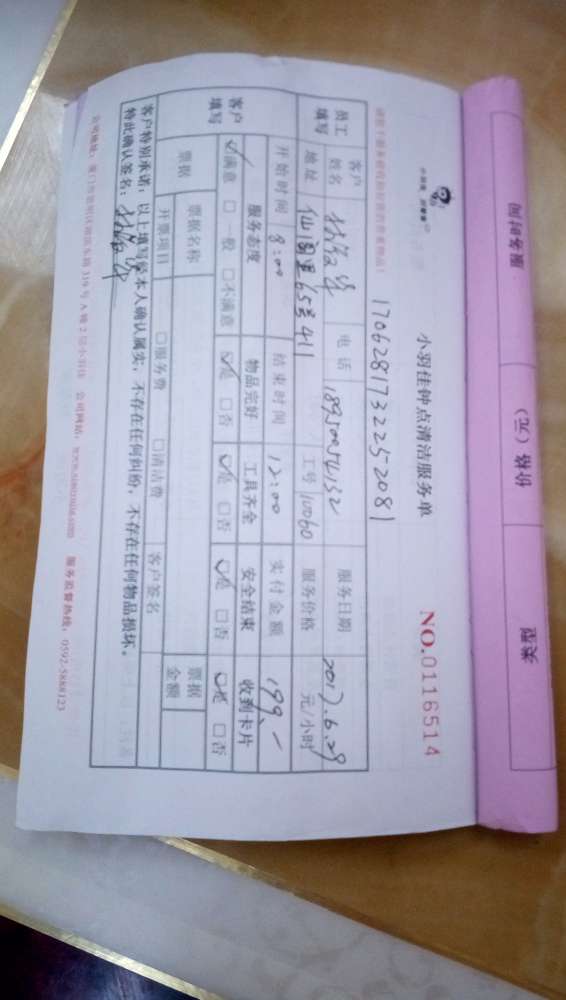 服务时间 价格（元） 类型
小羽佳钟点清洁服务单
NO.0116514
1706281732252081
员工填写 客户姓名 电话 18950054132 服务日期 2017.6.29
地址 仙阁里65号411 工号 10060 服务价格 元/小时
开始时间 8:00 结束时间 12:00 实付金额 199.-
客户填写 服务态度 物品完好 工具齐全 安全结束 收到卡片
☑满意 □一般 □不满意 ☑是 □否 ☑是 □否 ☑是 □否 ☑是 □否
票据 票据名称 客户签名 票据金额
开票项目 □服务费 □清洁费
客户特别承诺：以上填写经本人确认属实，不存在任何纠纷，不存在任何物品损坏。
特此确认签名：
319号A幢2层小羽佳 公司网站： 服务监督热线：0592-5888123